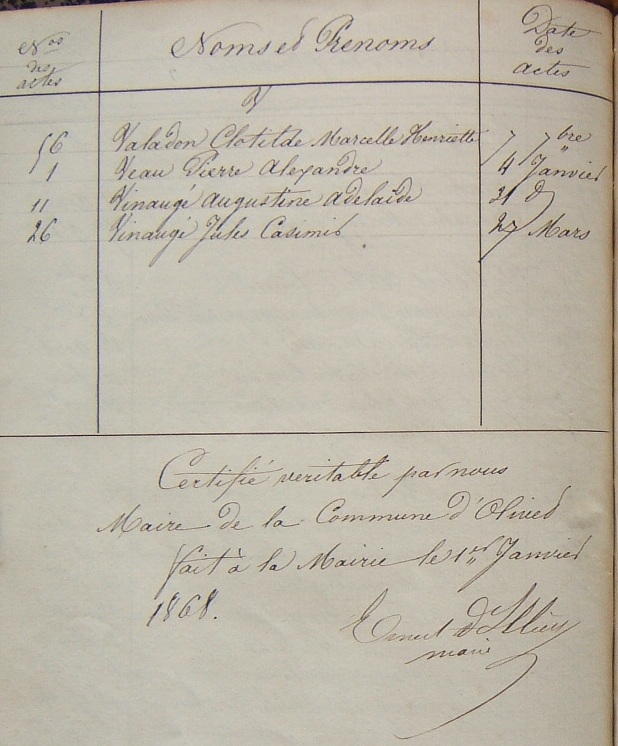 Nos des actes
Noms et Prenoms
Date des actes
V
56 Valadon Clotilde Marcelle Henriette 7 7bre
1 Veau Pierre Alexandre 4 Janvier
11 Vinaugé Augustine Adelaïde 31 d
26 Vinaugé Jules Casimir 27 Mars
Certifié veritable par nous
Maire de la Commune d'Olivet
fait à la Mairie le 1er Janvier
1868.
Ernest
maire